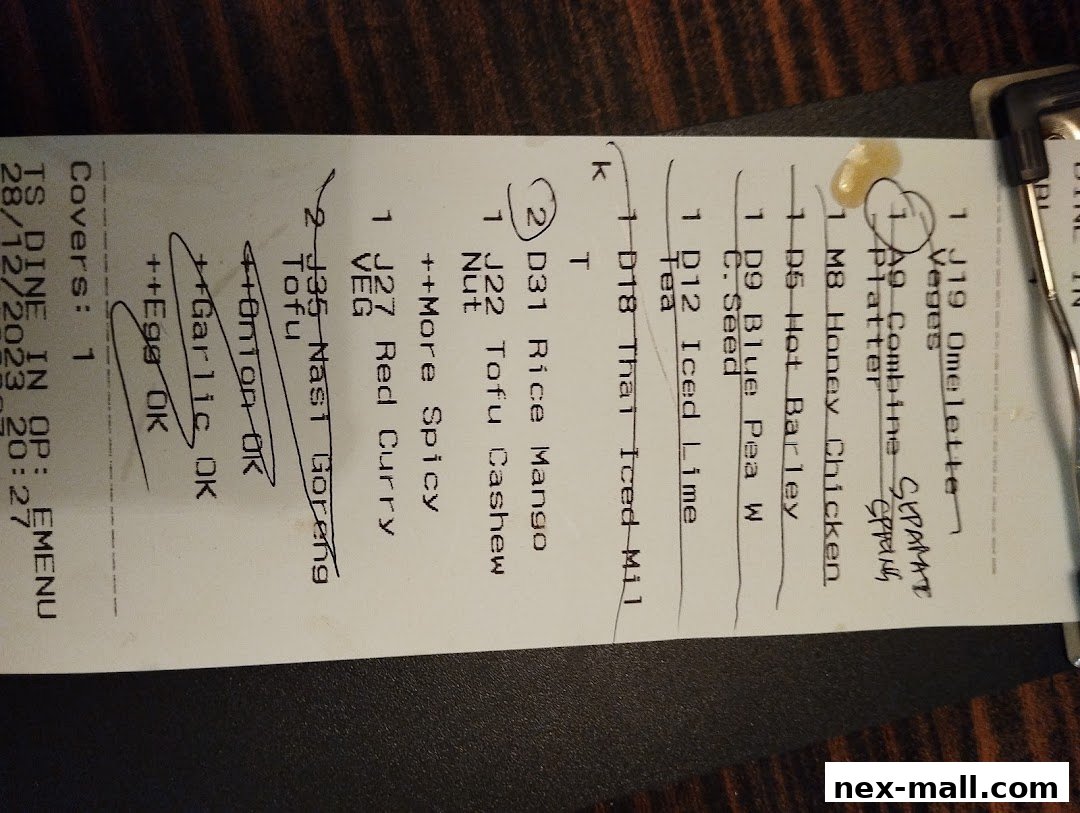 DINE IN
1 J19 Omelette
Veges
1 A9 Combine
Platter
SEPARATE
SPRING
1 M8 Honey Chicken
1 D5 Hot Barley
1 D9 Blue Pea W
C.Seed
1 D12 Iced Lime
Tea
1 D18 Thai Iced Mil
k
T
2 D31 Rice Mango
1 J22 Tofu Cashew
Nut
++More Spicy
1 J27 Red Curry
VEG
2 J35 Nasi Goreng
Tofu
++Onion OK
++Garlic OK
++Egg OK
Covers: 1
TS DINE IN OP: EMENU
28/12/2023 20:27
nex-mall.com